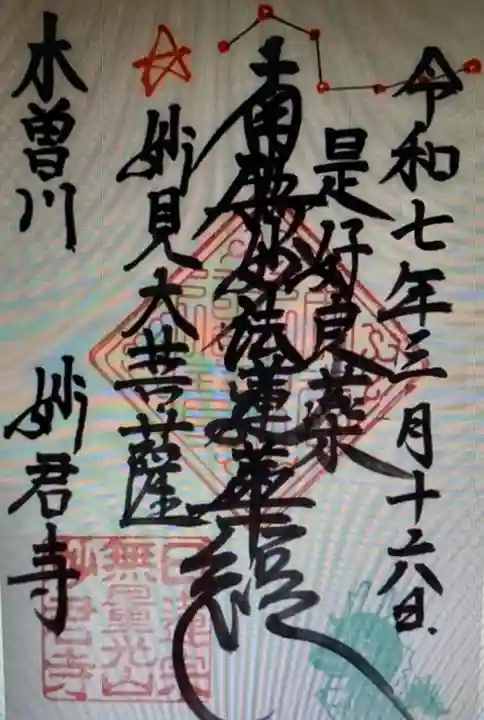 令和七年三月十六日
是好良薬
南無妙法蓮華経
妙見大菩薩
木曽川 妙君寺
日蓮宗
無量光山
妙君寺